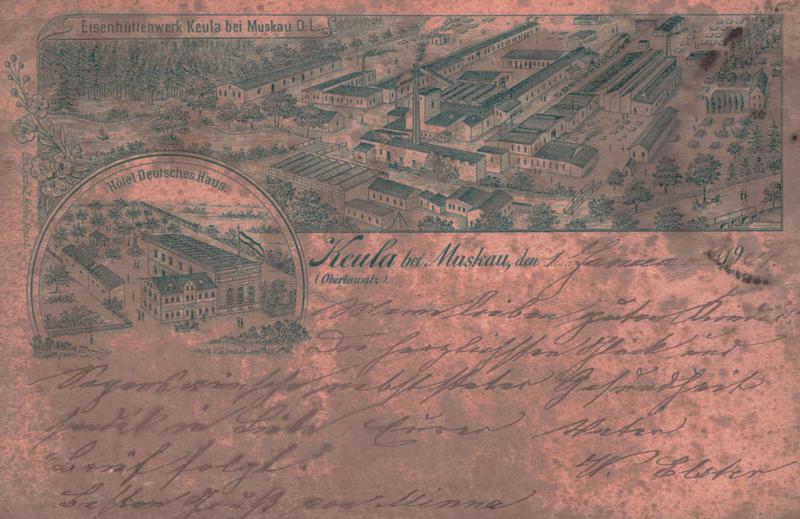 Eisenhüttenwerk Keula bei Muskau O.-L.
Hôtel Deutsches Haus.
Keula bei Muskau, den 1. Januar 19
(Oberlausitz).
Meine lieben guten Kinder
Die herzlichsten Glück und
Segenswünsche nebst steter Gesundheit
sendet in Liebe Eurer Vater
Brief folgt. W. Elster
Besten Gruß von Minna